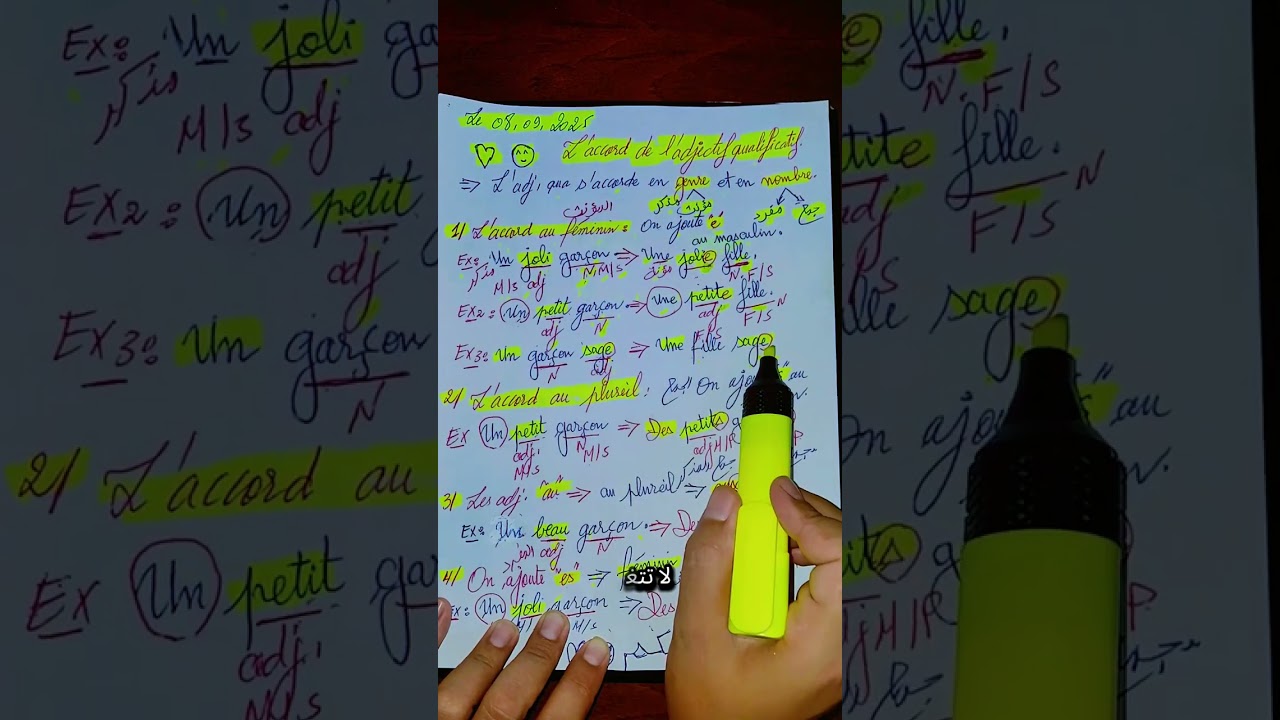 Le 08,09,2025
L'accord de l'adjectif qualificatif.
⇒ L'adj, qua s'accorde en genre et en nombre.
مؤنث مذكر مفرد جمع
1/ L'accord au féminin : On ajoute "e"
au masculin.
Ex: Un joli garçon ⇒ Une jolie fille.
M/S adj N M/S N. F/S
Ex2: Un petit garçon. ⇒ Une petite fille.
adj N adj F/S N
F/S
Ex3: Un garçon sage ⇒ Une fille sage
N adj
2/ L'accord au pluriel : On au
Ex Un petit garçon ⇒ Des petits
adj, N M/S adj M/P
M/S
3/ Les adj. "au" ⇒ au pluriel ⇒
Ex: Un beau garçon. ⇒ De
adj N
4/ On ajoute "es" ⇒ féminin
لا تتع
Ex: Un joli garçon ⇒ Des
M/S